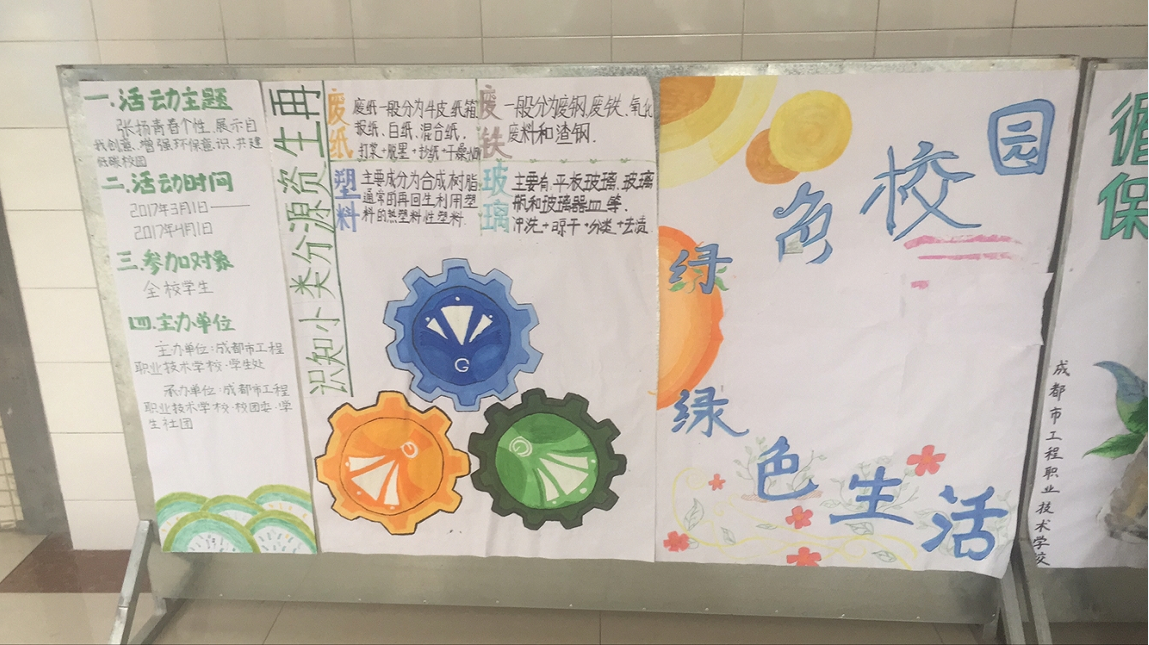 一.活动主题
张扬青春个性.展示自
我创意.增强环保意识.共建
低碳校园
二.活动时间
2017年3月1日——
2017年4月1日
三.参加对象
全校学生
四.主办单位
主办单位:成都市工程
职业技术学校·学生处
承办单位:成都市工程
职业技术学校·校团委·学
生社团
再生资源分类小知识
废纸
废纸一般分为牛皮纸箱
报纸、白纸、混合纸,
打浆+脱墨+抄纸+干燥
废铁
一般分为废钢,废铁、氧化
废料和渣钢.
塑料
主要成分为合成树脂
通常的再回生利用塑
料的热塑料性塑料.
玻璃
主要有.平板玻璃.玻璃
瓶和玻璃器皿等.
冲洗+晾干+分类+去渍
绿色校园
绿色生活
成都市工程职业技术学校
循
保